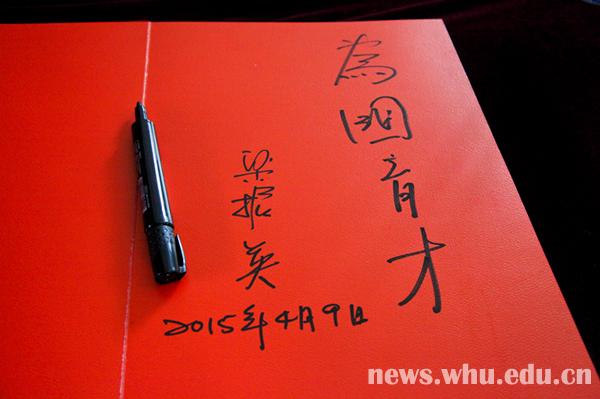 為國育才
梁振英
2015年4月9日
news.whu.edu.cn